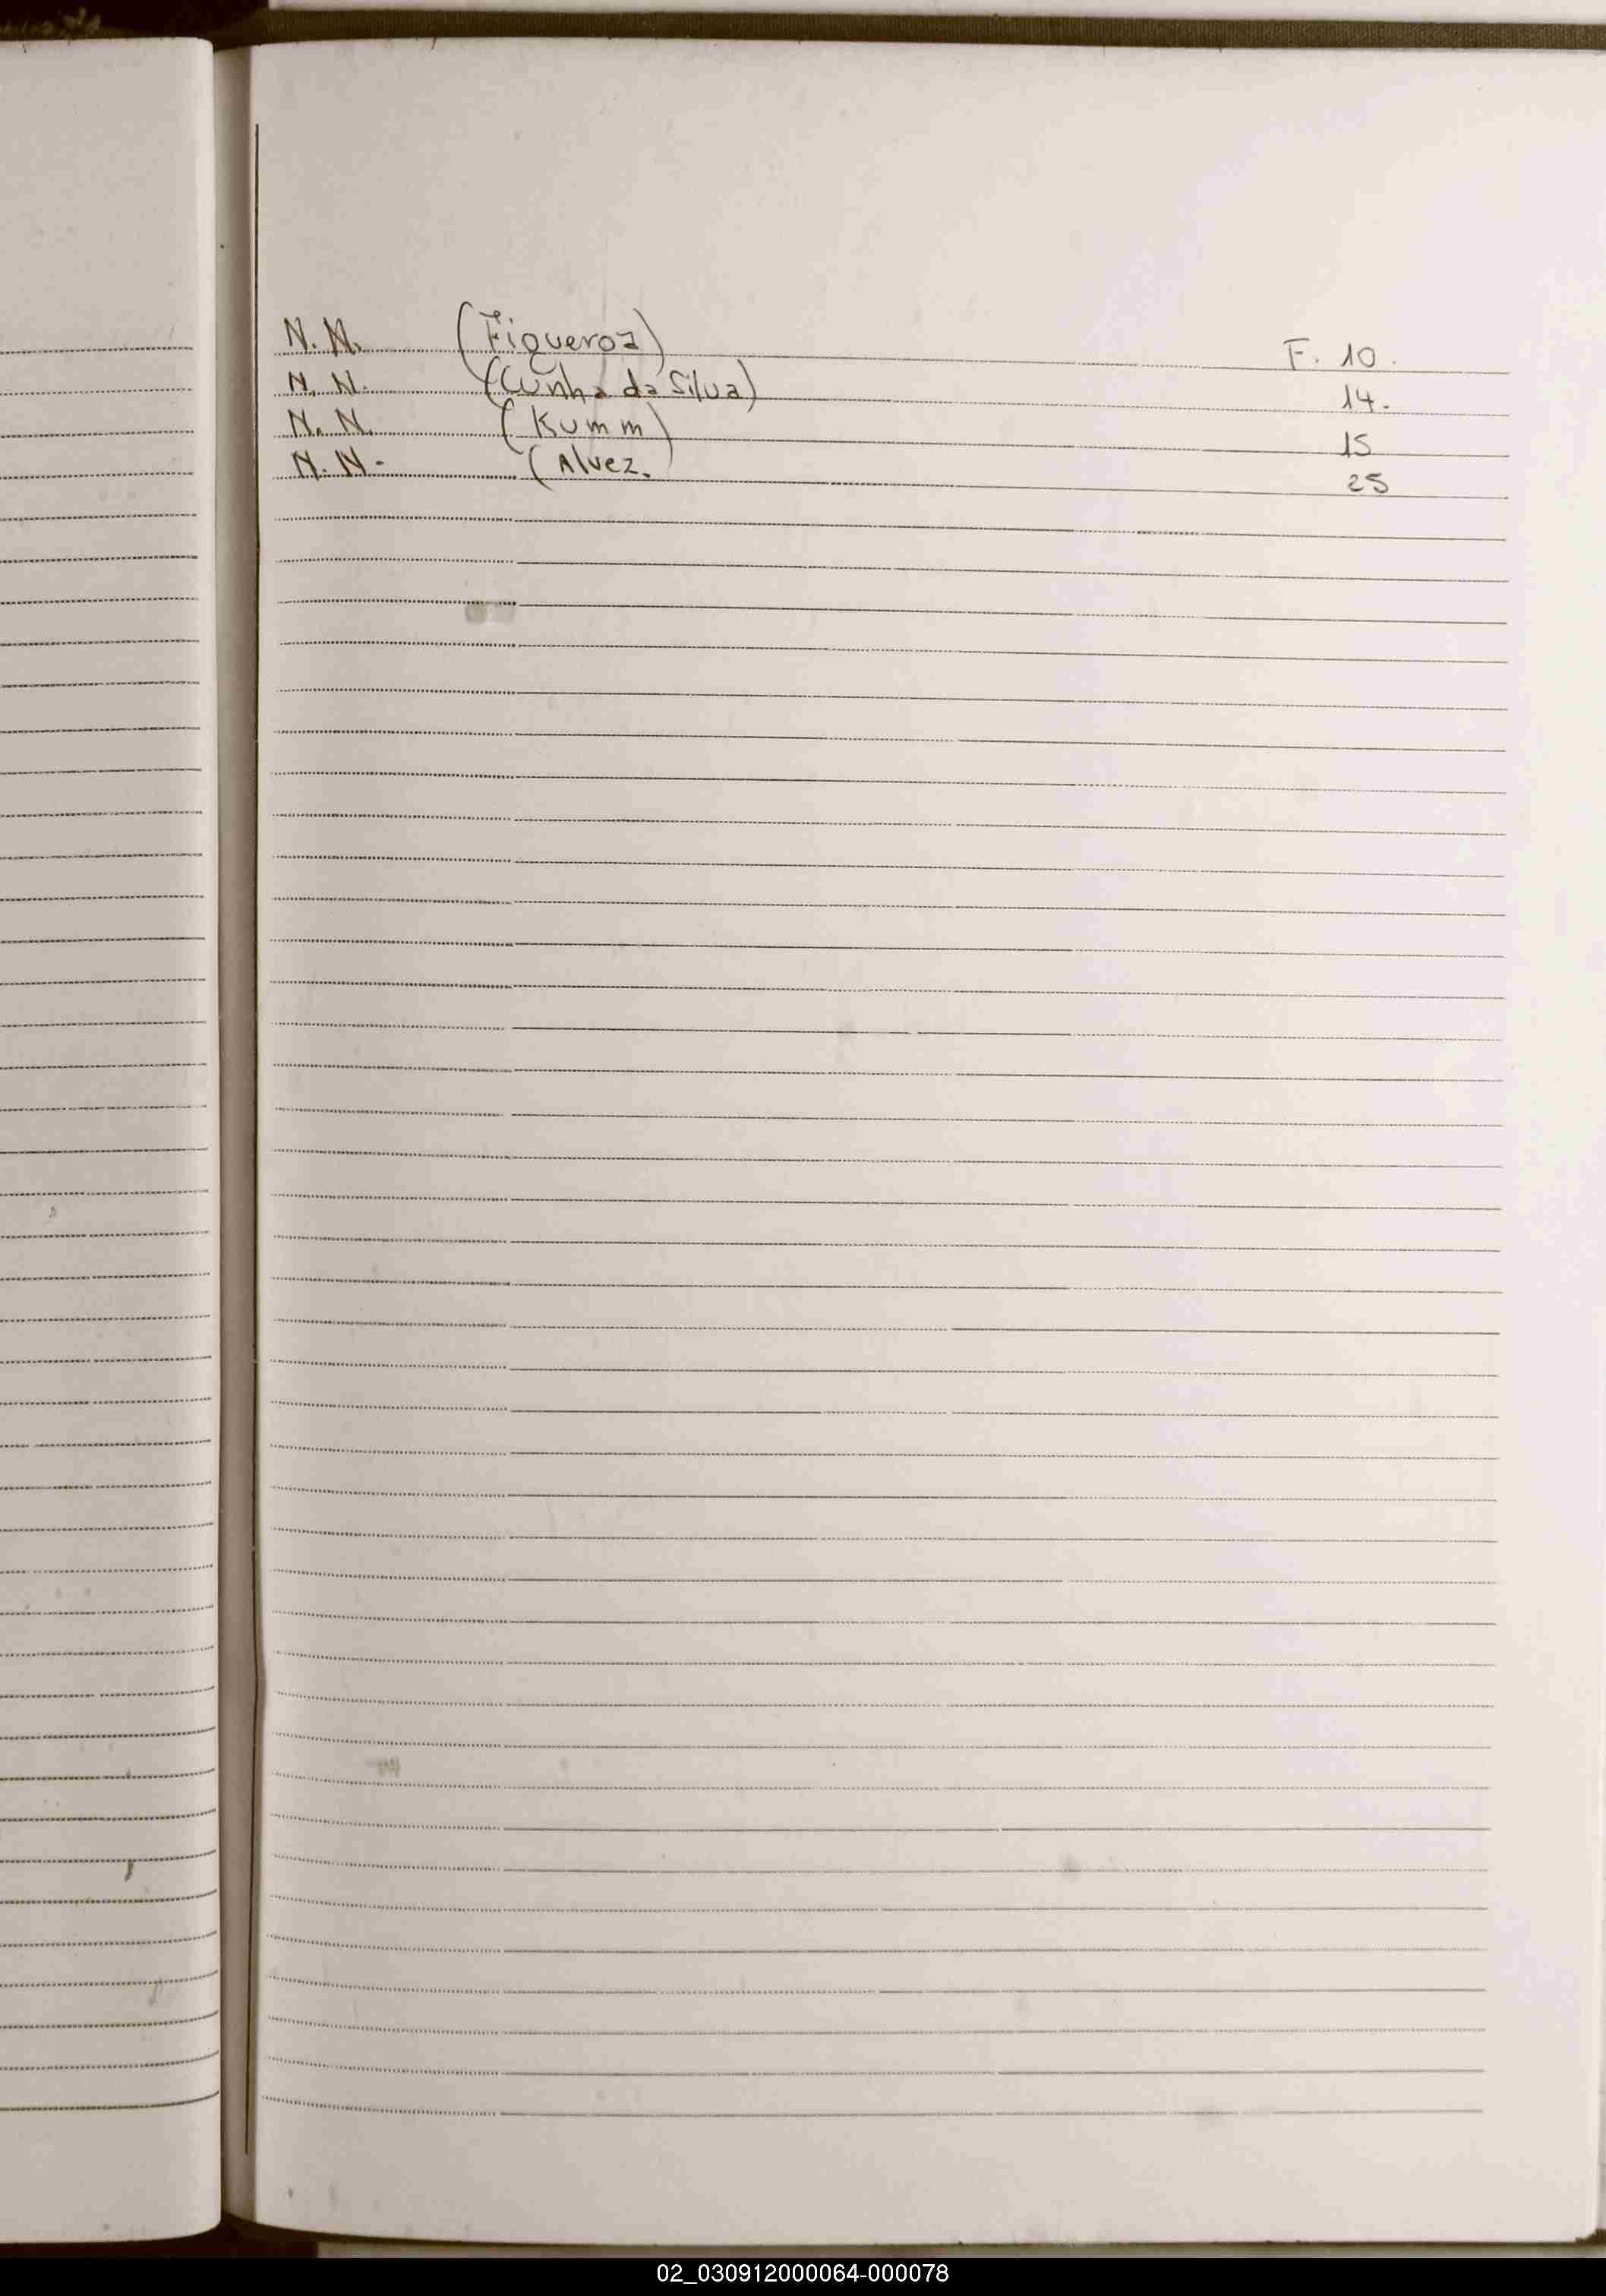 N. N. (Figueroa) F. 10.
N. N. (Cunha da Silva) 14.
N. N. (Kumm) 15
N. N. (Alvez. 25
02_030912000064-000078